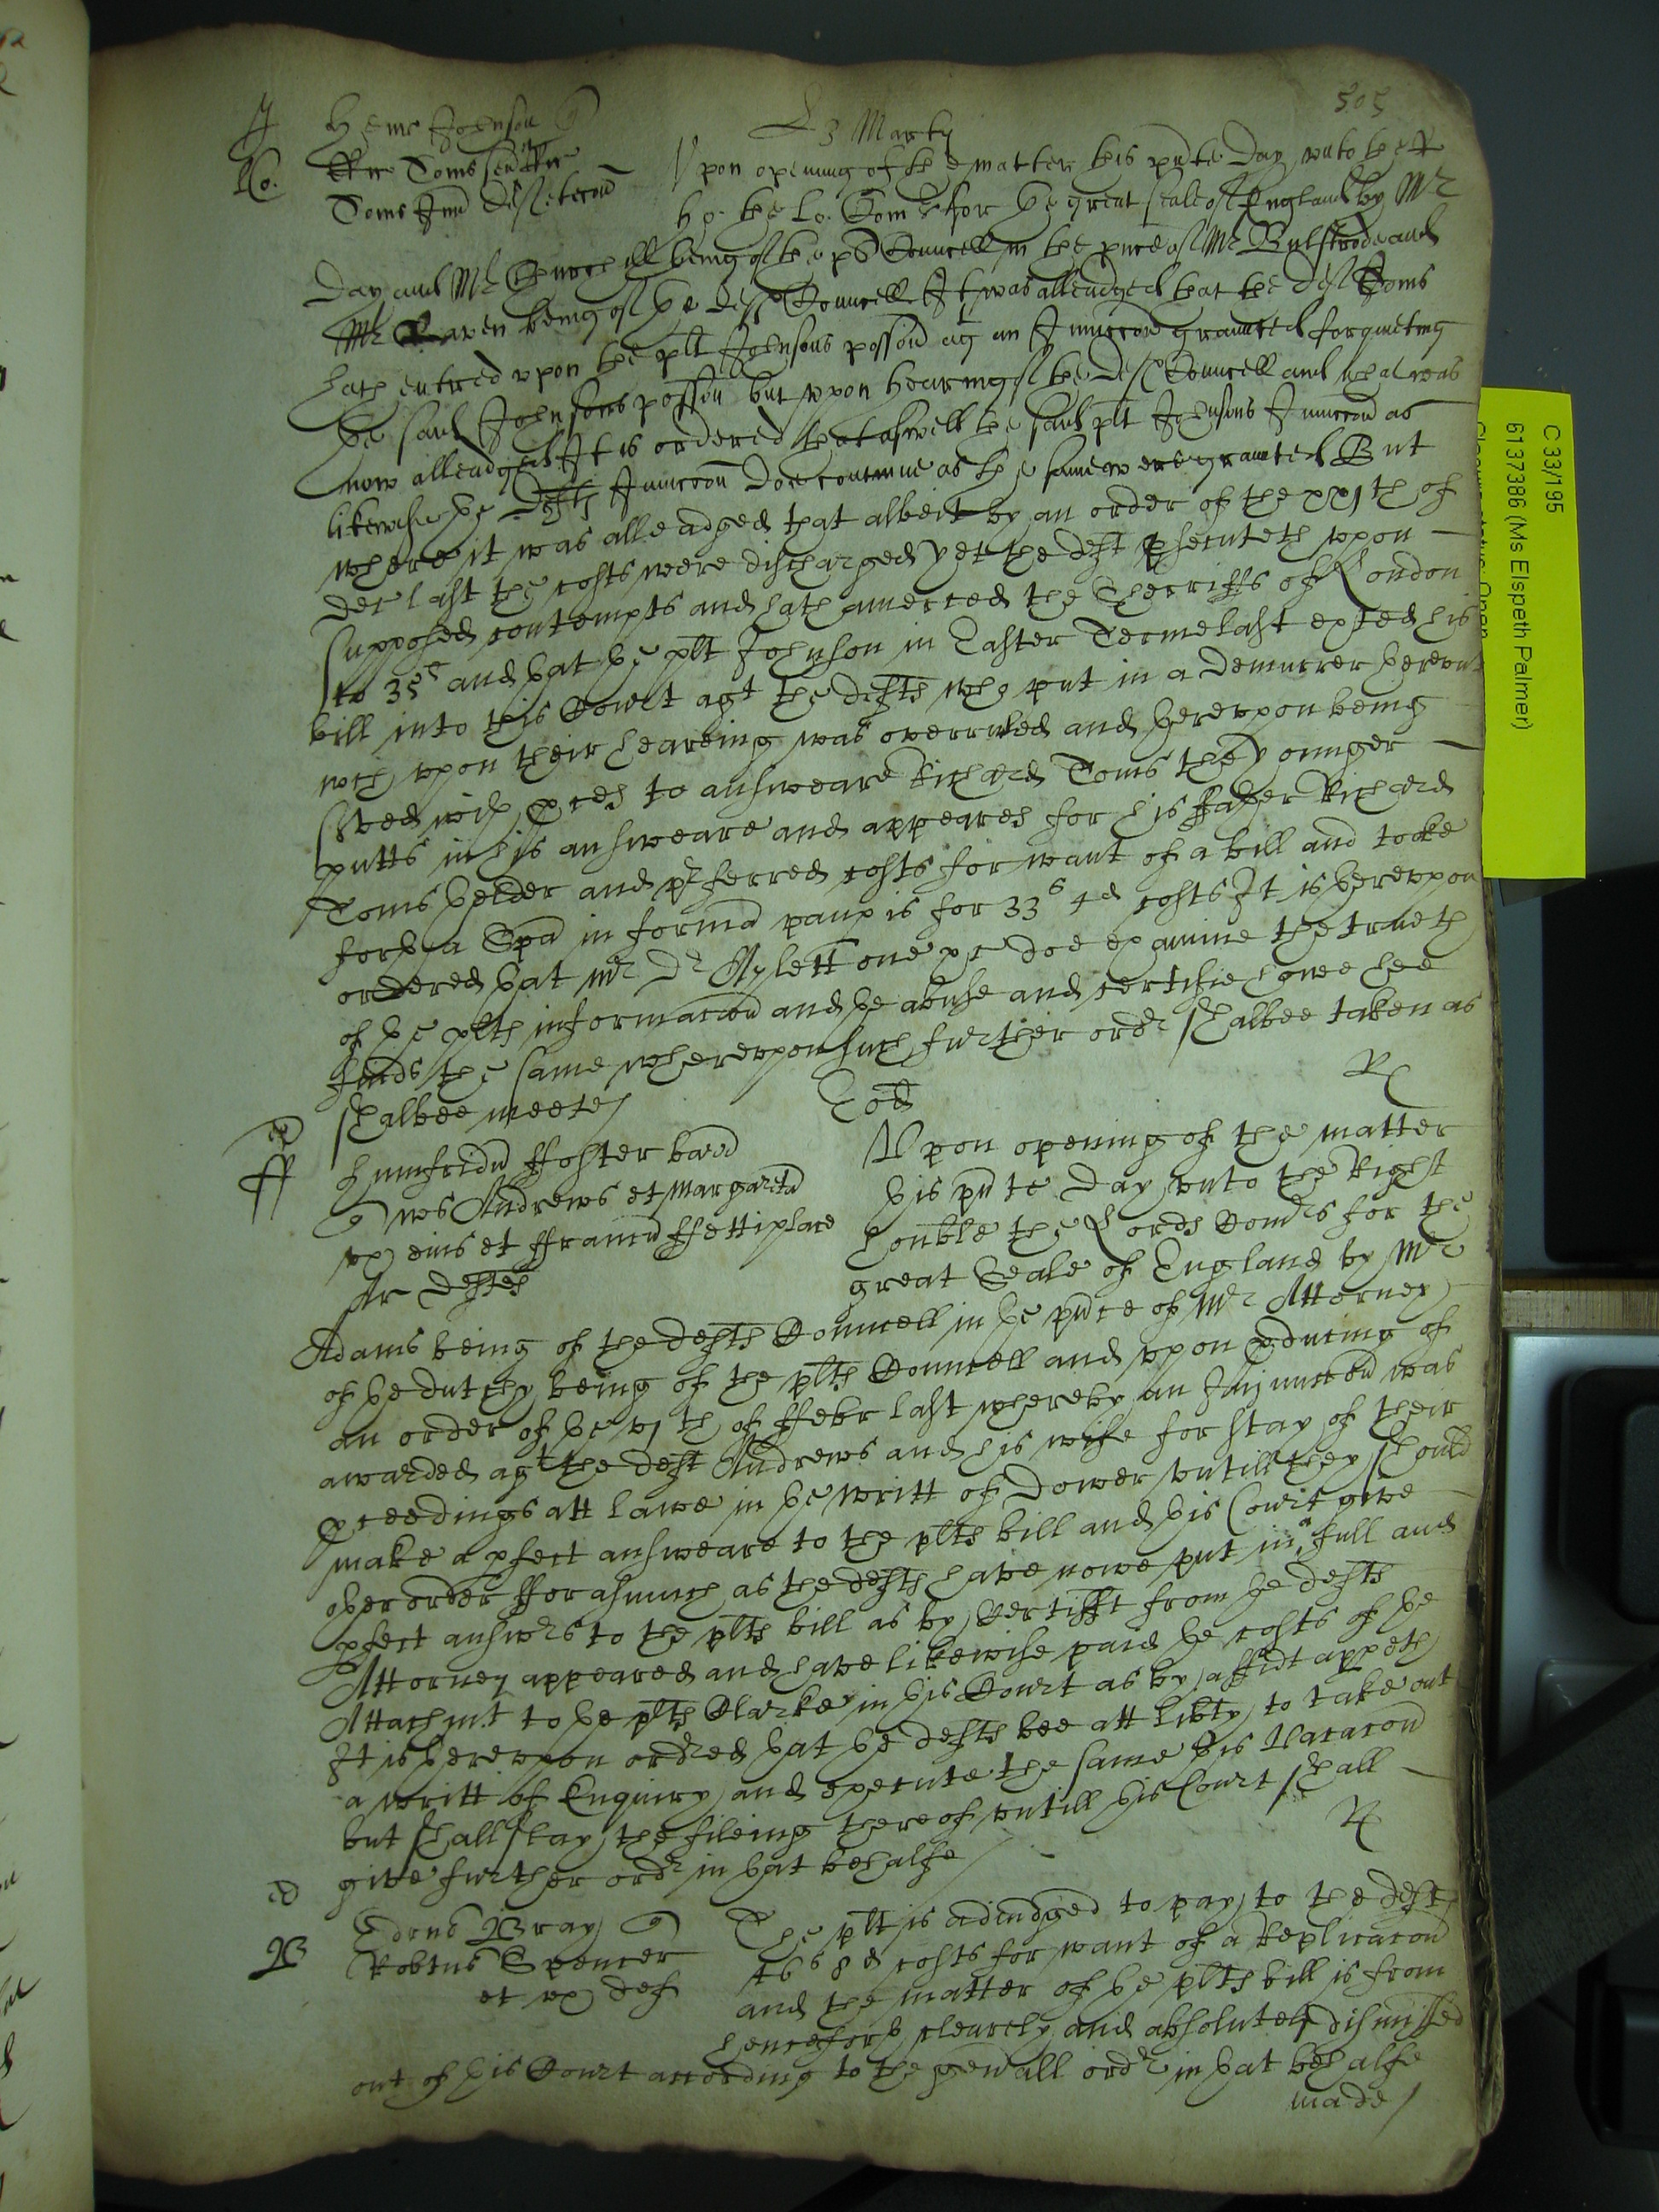 505
3 Marty
J Henr Johnson q
Ric Toms sen et Ric
Ro.
Toms Jun def et econ
Upon opening of the matter this pnte day unto the rt
ho. the lo. Com for the great seale of England by Mr
Day and Mr Churchill being of the pl Councell in the pnce of Mr Bulstrode and
Mr being of the def Councell It was alleadged that the def Toms
hath entred upon the plt Johnsons possion ag an Iniuccon graunted for quieting
the said Johnsons possion but upon hearing of the def Councell and what was
now alleadged It is ordered that aswell the said plt Johnsons Iniuccon as
likewise the defts Iniuccon doe continue as the same were graunted But
where it was alleadged that albeit by an order of the xxjth of
Dec last the costs were discharged yet the deft psecuteth upon
supposed contempts and hath amerced the Sherriffs of London
to 35s and that the plt Johnson in Easter Terme last exhted his
bill into this Court agt the defts who put in a demurrer thereunto
wch upon their heareing was overruled and thereupon being
sved with pces to answeare Richard Toms the younger
putts in his answeare and appeares for his ffather Richard
Toms thelder and pferred costs for want of a bill and tooke
forth a Spa in forma paupis for 33s 4d costs It is thereupon
ordered that Mr Dr Aylett one &c doe examine the trueth
of the plts informacon and the abuse and certifie howe hee
finds the same whereupon such further ordr shalbee taken as
shalbee meete/
R
Eod
ff Humfridu ffoster bart
q Andrews et Margareta
ux eius et ffranc ffettiplace
Ar defts
Upon opening of the matter
this pnte day unto the Right
honble the Lords Comrs for the
great Seale of England by Mr
Adams being of the defts Councell in the pnce of Mr Attorney
of the dutchy being of the plts Councell and upon pducing of
an order of the vjth of ffebr last whereby an Iniunccon was
awarded agt the deft Andrews and his wife for stay of their
pceedings att lawe in the writt of Dower untill they should
make a pfect answeare to the plts bill and this Court give
other order fforasmuch as the defts have nowe put in a full and
pfect answrs to the plts bill as by Certifft from the defts
Attorney appeared and have likewise paid the costs of the
Attachmt to the plts Clarke in this Court as by affidt appeth
It is thereupon ordred that the defts bee att libty to take out
a writt of Enquiry and execute the same this Vacacon
but shall stay the fileing thereof untill this Court shall
give further ordr in that behalfe/
R
B
Edrus Bray q
Robtus Spencer
et ux def
The plt is adiudged to pay to the deft
46s 8d costs for want of a Replicacon
and the matter of the plts bill is from
henceforth clearely and absolutely dismissed
out of this Court according to the genall ordr in that behalfe
made/
C 33/195
6137386 (Ms Elspeth Palmer)